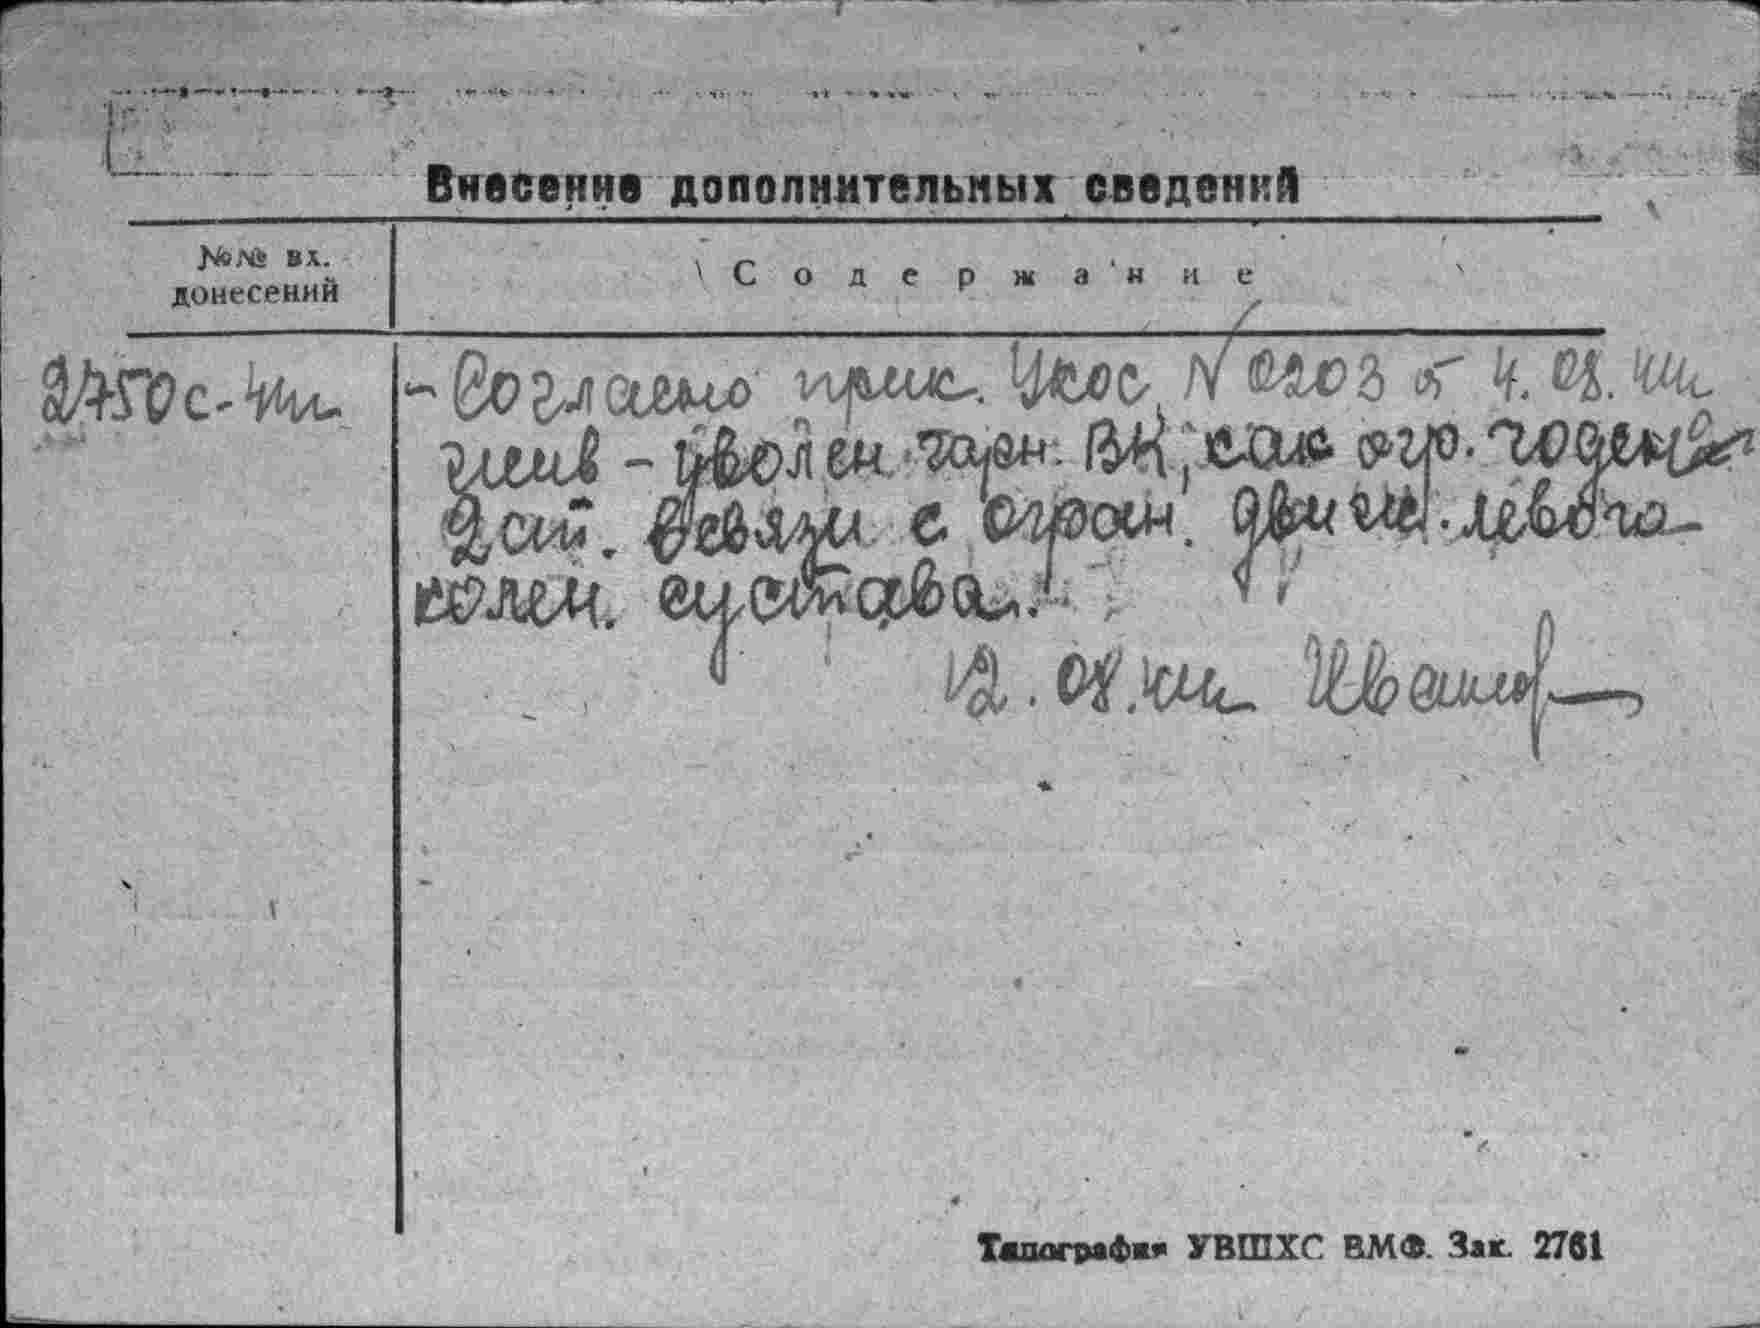 Внесение дополнительных сведений
№№ вх.
донесений
Содержание
2450с-44г.
- Согласно прик. № 0203 от 4.08.44г.
жив - уволен гарн. ВК, как огр. годный
2 ст. в связи с огран. движ. левого
колен. сустава.
12.08.44г. Иванов
Типография УВШХС ВМФ. Зак. 2761